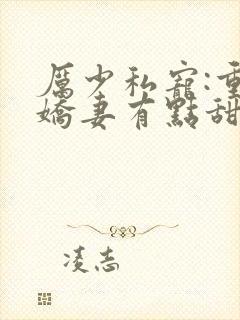 厲少私寵:重
嬌妻有點甜
凌志